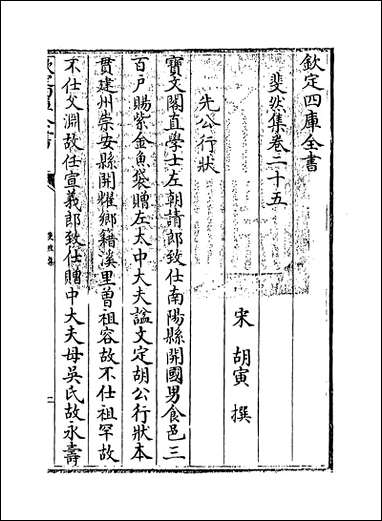 欽定四庫全書
斐然集卷二十五
宋 胡寅 撰
先公行狀
寶文閣直學士左朝請郎致仕南陽縣開國男食邑三
百户賜紫金魚袋贈左太中大夫諡文定胡公行狀本
貫建州崇安縣開耀鄉籍溪里曽祖容故不仕祖罕故
不仕父淵故任宣義郎致仕贈中大夫母吳氏故永壽